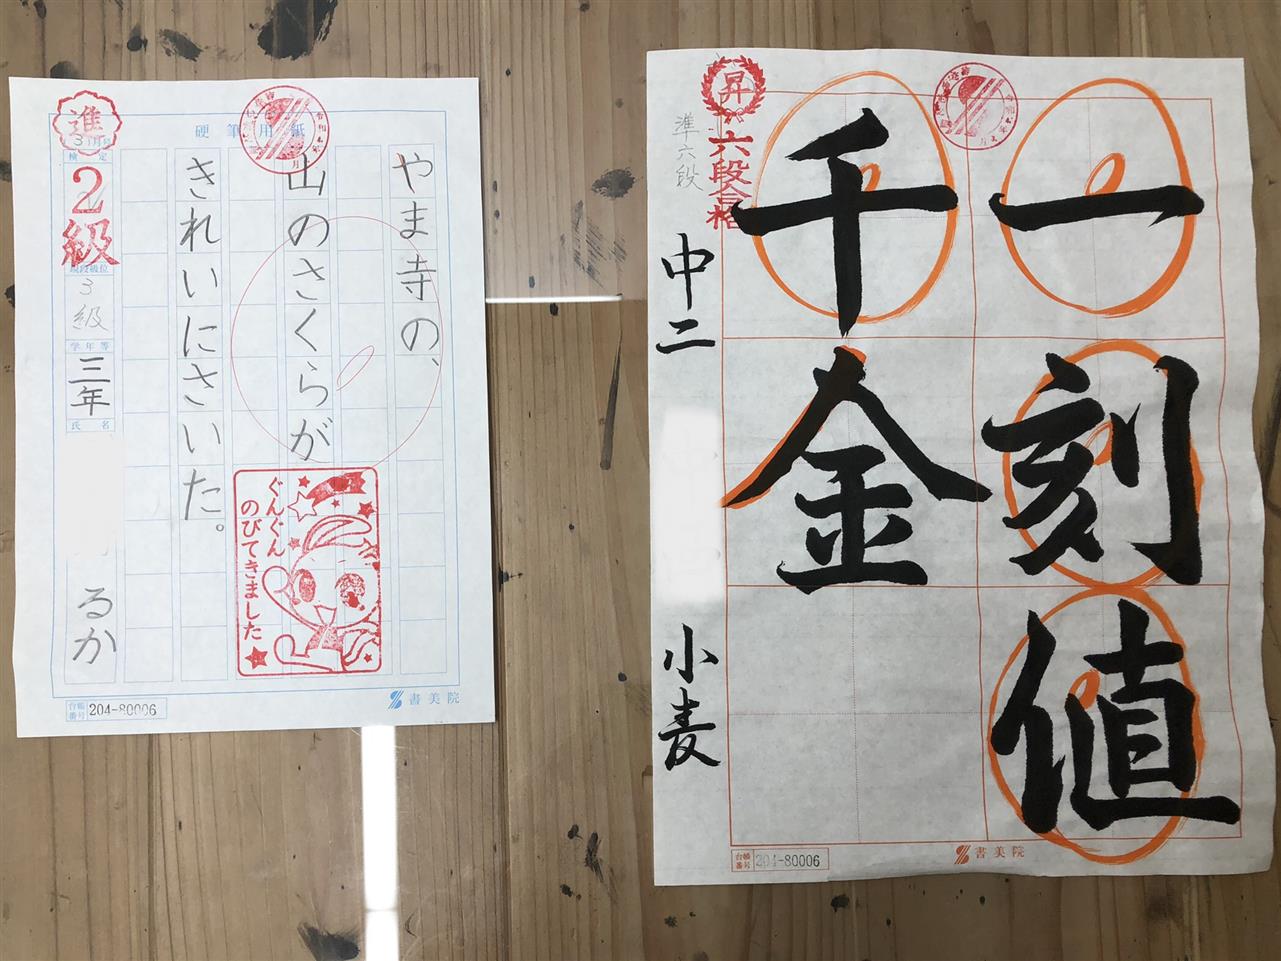 硬筆用紙
やま寺の、
山のさくらが
きれいにさいた。
進
3月号
検定
2級
現段級位
3級
学年等
三年
氏名
るか
ぐんぐん
のびてきました
台帳番号
204-80006
書美院
一刻値
千金
昇
六段合格
準六段
中二
小麦
台帳番号
204-80006
書美院